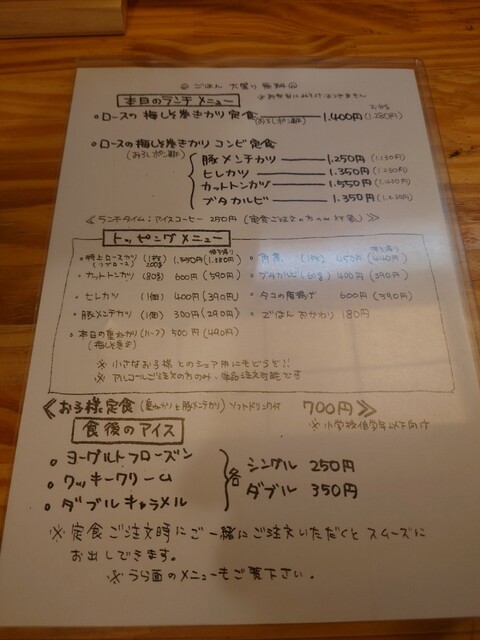 ごはん 大盛り 無料
本日のランチメニュー
・ロースの梅しそ巻きカツ定食 1,400円 (1,280円)
(おろしポン酢)
・ロースの梅しそ巻きカツ コンビ定食
(おろしポン酢)
豚メンチカツ 1,250円
ヒレカツ 1,350円
カットトンカツ 1,550円
ブタカルビ 1,350円
≪ランチタイム:アイスコーヒー 250円 (定食ご注文の方のみ)≫
トッピングメニュー
・カットトンカツ (80g) 600円 (590円)
・ヒレカツ (1個) 400円 (390円)
・豚メンチカツ (1個) 300円 (290円)
・本日の重ねカツ (ハーフ) 500円 (490円)
(梅しそ巻き)
・ブタカルビ (60g) 400円 (390円)
・タコの唐揚げ 600円 (590円)
・ごはんおかわり 180円
※ 小さなお子様とのシェア用にもどうぞ!!
※ アルコールご注文の方のみ、単品注文可能です
≪お子様定食 (重ねカツと豚メンチカツ) ソフトドリンク付 700円≫
※小学校低学年以下向け
食後のアイス
。ヨーグルトフローズン
。クッキークリーム
。ダブルキャラメル
各
シングル 250円
ダブル 350円
※ 定食ご注文時にご一緒にご注文いただくと スムーズに
お出しできます。
※うら面のメニューもご覧下さい。